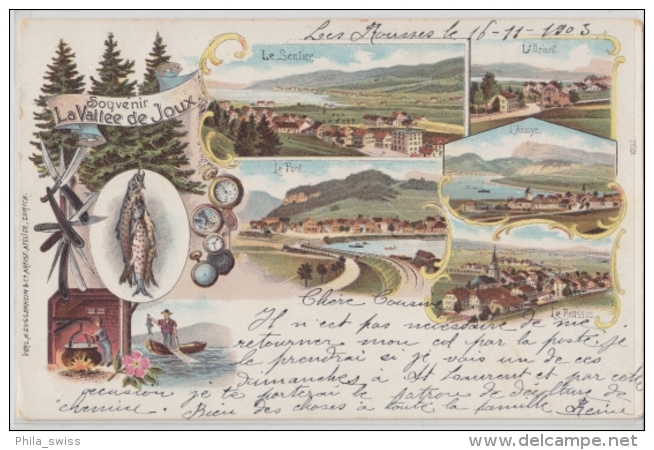 Les Rousses le 16-11-1903
Souvenir
La Vallée de Joux
Le Sentier
L'Orient
L'Abbaye
Le Pont
Le Brassus
VERL. A. GUGGENHEIM & Co. ARTIST. ATELIER, ZÜRICH.
Chère Cousine
Il n'est pas nécessaire de me
retourner mon col par la poste je
le prendrai si je vais un de ces
dimanches à St Laurent et par cette
occasion je te porterai le patron de décolture de
"chemise". Bien des choses à toute la famille Reine
Phila_swiss